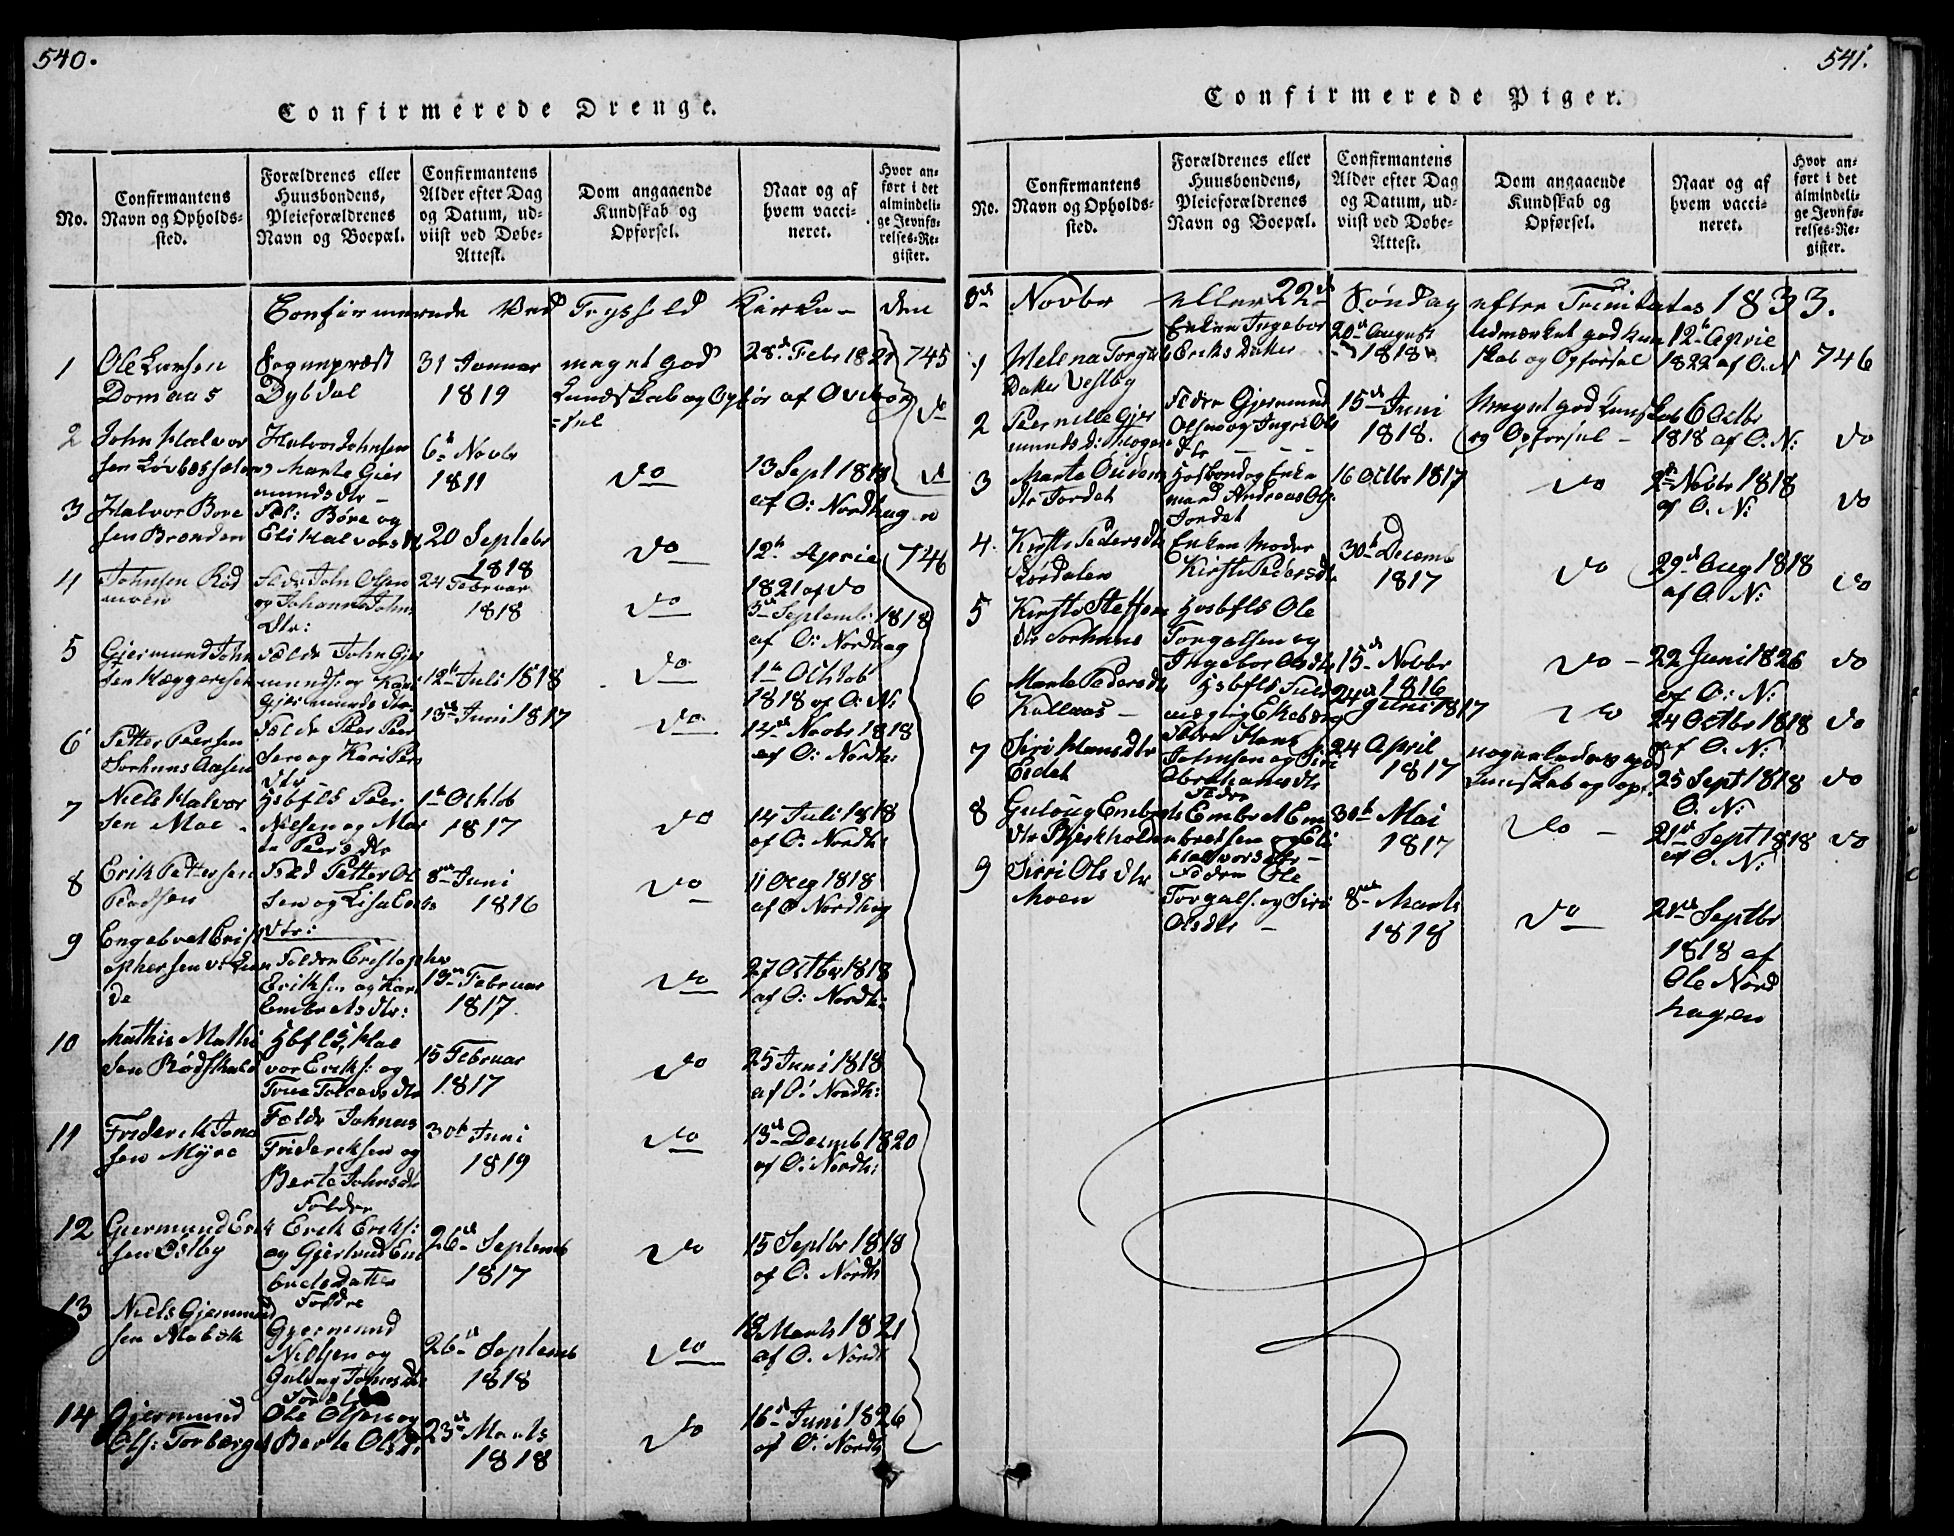 540.
Confirmerede Drenge.
No.
Confirmantens
Navn og Opholds-
sted.
Forældrenes eller
Huusbondens,
Pleieforældrenes
Navn og Boepæl.
Confirmantens
Alder efter Dag
og Datum, ud-
viist ved Døbe-
Attest.
Dom angaaende
Kundskab og
Opførsel.
Naar og af
hvem vacci-
neret.
Hvor an-
ført i det
almindeli-
ge Jevnfø-
relses-Re-
gister.
Confirmerede ved Tryssild Kirke - den
1
Ole Larsen
Domaas
Sognepræst
Dybdal
31 Januar
1819
meget god
Kundskab og Opfør
=sel
28de Febr 1821
af Ovibor
745
2
John Halvor
sen
Halvor Johnsen
Marte Gier
mundsdtr -
6te Novbr
1811
do
13 Sept 1818
af O: Nordhagen
3
Halvor Bore
sen Brenden
Børe og
Eli Halvorsdtr
20 Septebr
1818
do
12te April
1821 af do
746
4
Johnsen Rød
moen
Fældr John Olsen
og Johanne John
dtr:
24 Febrvar
1818
do
3de Septemb: 1818
af O: Nordhag
5
Giermund John
sen Kæggeresen
Fældr John Gier
munds: og Kari
Gjermundsdtr
12te Juli 1818
do
1te Octob
1818 af O: N:
6
Petter Peersen
Sorhuus Aasen
Fældr Peer Peer
sen og Kari Per
dtr
13de Juni 1817
do
14de Novbr 1818
af O: Nordh:
7
Niels Halvor
sen Moe
Hsbfls Peer
Nilsen og Mar
te Peersdtr
1te Octob
1817
do
14 Juli 1818
af O: Nordh:
8
Erik Pettersen
Pladsen
Fæld Petter Ol
sen og Lisa
dtr:
8de Juni
1816
do
11 Aug 1818
af O Nordhag
9
Engebret Crist
ophersen v: Lun
de
Foldre Cristopher
Eriksen og Kari
Embretsdtr:
19de Februar
1817
do
27 Octbr 1818
af O: Nordh:
10
Mathis Mathi
sen Rødskald
Hbfls Hal
vor Eriks: og
15 Februar
1817
do
25 Juni 1818
af O: Nordh:
11
Friderik Jona
sen Myre
Fældr Johnas
Frideriksen og
Berte Johnsdtr
30te Juni
1819
do
13de Decmb 1820
af O: Nordh:
12
Giermund Erik
sen Østby
Foldre
Erik Eriks:
og Gjertrud Em
bretsdatter
26de Septemb
1817
do
15 Septbr 1818
af O: Nordh
13
Niels Gjermund
sen Mobæk
Foldre
Gjermund
Nilsen og
Guloug Johnsdtr
26de Septemb
1818
do
18 Marts 1821
af O. Nordh
14
Gjermund
Ols: Torberget
Ole Olsen og
Berte Olsdtr
23de Marts
1818
do
16de Juni 1826
af O: Nordh
541.
Confirmerede Piger.
No.
Confirmantens
Navn og Opholds-
sted.
Forældrenes eller
Huusbondens,
Pleieforældrenes
Navn og Boepæl.
Confirmantens
Alder efter Dag
og Datum, ud-
viist ved Døbe-
Attest.
Dom angaaende
Kundskab og
Opførsel.
Naar og af
hvem vacci-
neret.
Hvor an-
ført i det
almindeli-
ge Jevnfø-
relses-Re-
gister.
3de Novbr eller 22de Søndag efter Trinitatis 1833.
1
Helena Torgals
Datter Vestby
Enken Ingebor
Eriks Datter
20de August
1818
udmærket god Kun
skab og Opførsel
12te April
1822 af O. N
746
2
Pernille Gjer
mundsd:
Fældre Gjermund
Olsen og Ingri Ols
dtr - - -
15de Juni
1818.
Meget god Kundskab
og Opførsel -
6 Octbr
1818 af O: N:
do
3
Marte Ouden
dtr Jordet
Hosbond og Enke
mand Andreas Ols:
Jordet
16 Octbr 1817
do
2de Novbr 1818
af O. N:
do
4.
Kirsti Pedersdtr
Rørdalen
Enken Moder
Kirsti Pedersdtr
30te Decemb
1817
do
29de Aug 1818
af O. N:
do
5
Kirsti Steffens
dtr Sorhuus
Hosbfls Ole
Torgalsen og
Ingebor Olsdtr
15de Novbr
1816
do -
22 Juni 1826
af O: N:
do
6
Marte Pedersdtr
Kallaas -
24de Juni 1817
do
24 Octbr 1818
af O. N:
do
7
Siri Hansdtr
Eidet
Foldre Hans
Johnsen og Siri
Abrahamsdtr
24 April
1817
nogenledes god
Kunskab og opf:
25 Sept 1818
O. N:
do
8
Guloug Embrets
dtr Bjerkholden
Foldre
Embret Em
bretsen og Eli
Halvorsdtr -
30te Mai
1817
do -
21de Sept 1818
af O. N:
do
9
Sirri Olsdtr
Moen
Foldre Ole
Torgals: og Siri
Olsdtr -
8de Marts
1818
do
21de Septbr
1818 af
Ole Nord
hagen